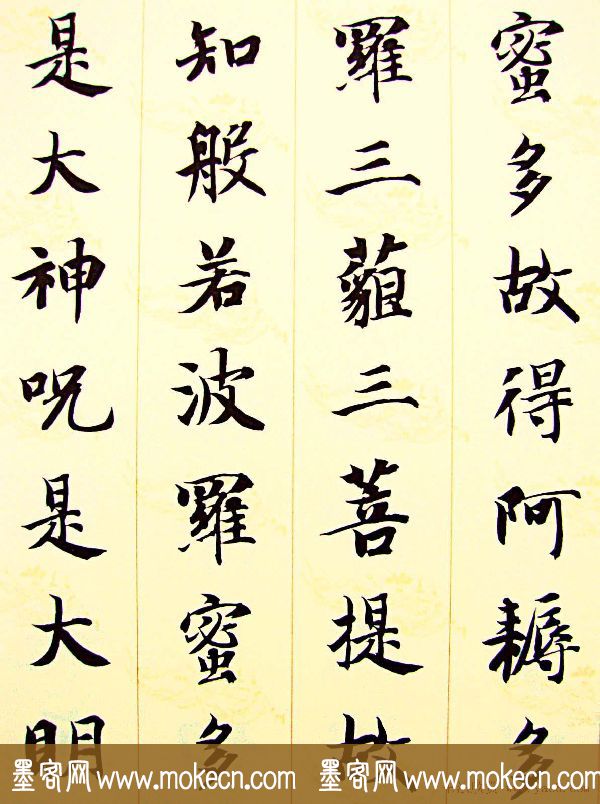 蜜多故得阿耨多
羅三藐三菩提故
知般若波羅蜜多
是大神呪是大明
墨客网 www.mokecn.com 墨客网 www.mokecn.com